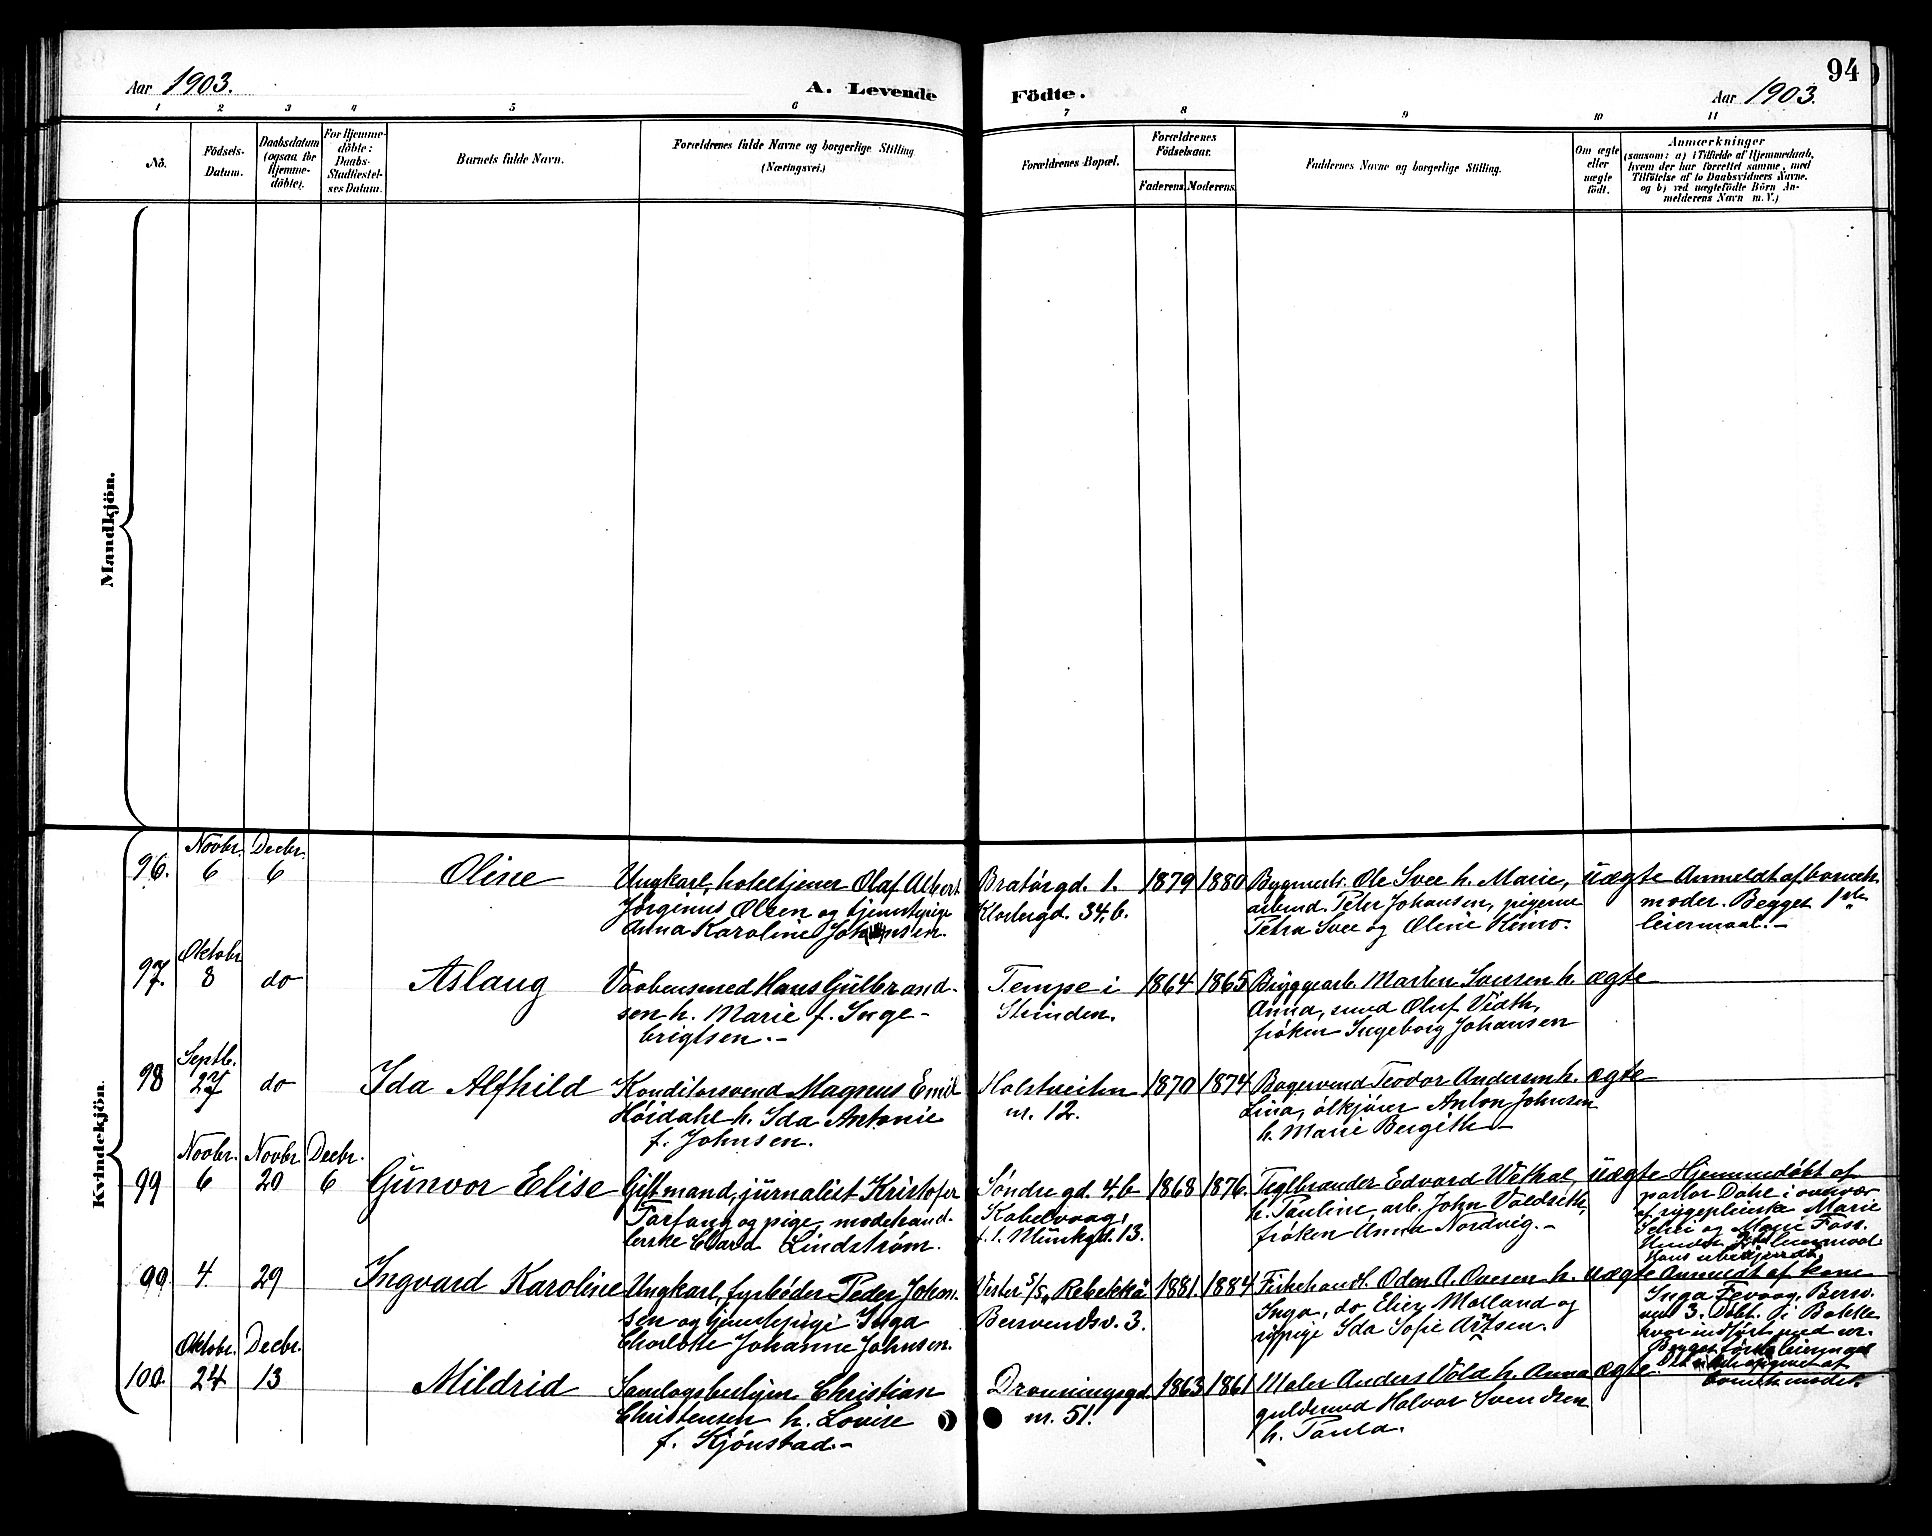 94
Aar 1903.
A. Levende
Födte.
Aar 1903.
1 2 3 4 5 6 7 8 9 10 11
No.
Födsels-
Datum.
Daabsdatum
(ogsaa for
Hjemme-
döbte).
For Hjemme-
döbte:
Daabs-
Stadfæstel-
ses Datum.
Barnets fulde Navn.
Forældrenes fulde Navne og borgerlige Stilling
(Næringsvei.)
Forældrenes Bopæl.
Forældrenes
Födselsaar.
Faderens. Moderens.
Faddernes Navne og borgerlige Stilling.
Om ægte
eller
uægte
födt.
Anmærkninger
(saasom: a) i Tilfælde af Hjemmedaab,
hvem der har forrettet samme, med
Tilföielse af to Daabsvidners Navne.
og b) ved uægtefödte Börn An-
melderens Navn m. V.)
Mandkjön.
Kvindekjön.
96. Novbr. 6 Decbr. 6
Oline
Ungkarl, hoteltjener Olaf Albert
Jørgenus Olsen og tjenestepige
Anna Karoline Johansen.
Bratørgd. 1.
Klostergd. 34.b.
1879 1880
Bygmestr. Ole Svee h. Marie,
arbmd. Peter Johansen, pigerne
Petra Svee og Oline Kimo.
uægte
Anmeldt af barnets
moder. Begges 1ste
leiermaal.-
97. Oktobr. 8 do
Aslaug
Vaabensmed Hans Gulbrand-
sen h. Marie f. Inge-
brigtsen.-
Tempe i
Strinden.
1864 1865
Bryggearb. Morten Svensen h.
Anna, smed Oluf Vidth,
frøken Ingeborg Johansen
ægte
98 Septb. 27 do
Ida Alfhild
Konditorsvend Magnus Emil
Høidahl h. Ida Antonie
f. Johnsen.
Holstveiten
nr. 12.
1870 1874
Bagersvend Teodor Andersen h.
Lina, ølkjører Anton Johnsen
h. Marie Bergithe
ægte
99 Novbr. 6 Novbr. 20 Decbr. 6
Gunvor Elise
Gift mand, jurnalist Kristofer
Torfang og pige, modehand-
lerske Clara Lindstrøm.
Søndregd. 4.b
Kabelvaag,
f. t. Munkgd. 13.
1868 1876.
Teglbrænder Edvard Withal,
h. Pauline, arb. John Voldseth,
frøken Anna Nordvig.-
uægte
Hjemmedøbt af
pastor Dahl i overvær
af sygepleierske Marie
og Marie Foss.
99. 4. 29
Ingvard Karoline
Ungkarl, fyrbøder Peder Johan-
sen og tjenestepige Inga
Charlotte Johanne Johnsen.
Vester S/S "Rebekka"
Bersvendsv. 3.
1881. 1884
Fiskehandl. Oden A. Ovesen h.
Inga, do. Elier Molland og
sypige Ida Sofie Artsen.
uægte
Anmeldt af kone
Inga Fevaag, Bersv.
3. Døbt i Bakke
hvor indført med nr.
100. Oktobr. 24 Decbr. 13
Mildrid
Samlagsbestyrer Christian
Christensen h. Lovise
f. Kjønstad.-
Dronningsgd.
nr. 51.
1863 1861
Maler Anders Vold h. Anna
guldsmed Halvor Svendsen
h. Paula.
ægte.